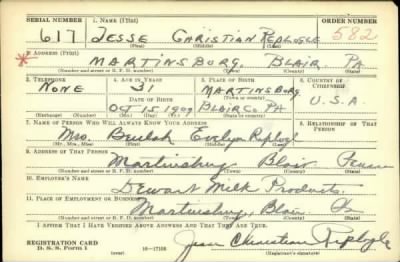 SERIAL NUMBER 1. NAME (Print) ORDER NUMBER
617 JESSE CHRISTIAN REPLOGLE 582
(First) (Middle) (Last)
2. ADDRESS (Print)
* MARTINSBURG. BLAIR. PA
(Number and street or R. F. D. number) (Town) (County) (State)
3. TELEPHONE 4. AGE IN YEARS 5. PLACE OF BIRTH 6. COUNTRY OF CITIZENSHIP
NONE 31 MARTINSBURG.
DATE OF BIRTH (Town or county)
OCT 15 1909 BLAIR CO. PA U.S.A.
(Mo.) (Day) (Yr.) (State or country)
7. NAME OF PERSON WHO WILL ALWAYS KNOW YOUR ADDRESS 8. RELATIONSHIP OF THAT PERSON
Mrs. Beulah Evelyn Replogle
(Mr., Mrs., Miss) (First) (Middle) (Last)
9. ADDRESS OF THAT PERSON
Martinsburg Blair Penna
(Number and street or R. F. D. number) (Town) (County) (State)
10. EMPLOYER'S NAME
Dewart Milk Products.
11. PLACE OF EMPLOYMENT OR BUSINESS
Martinsburg, Blair Pa
(Number and street or R. F. D. number) (Town) (County) (State)
I AFFIRM THAT I HAVE VERIFIED ABOVE ANSWERS AND THAT THEY ARE TRUE.
REGISTRATION CARD Jesse Christian Replogle
D. S. S. Form 1 (over) 16—17105 (Registrant's signature)